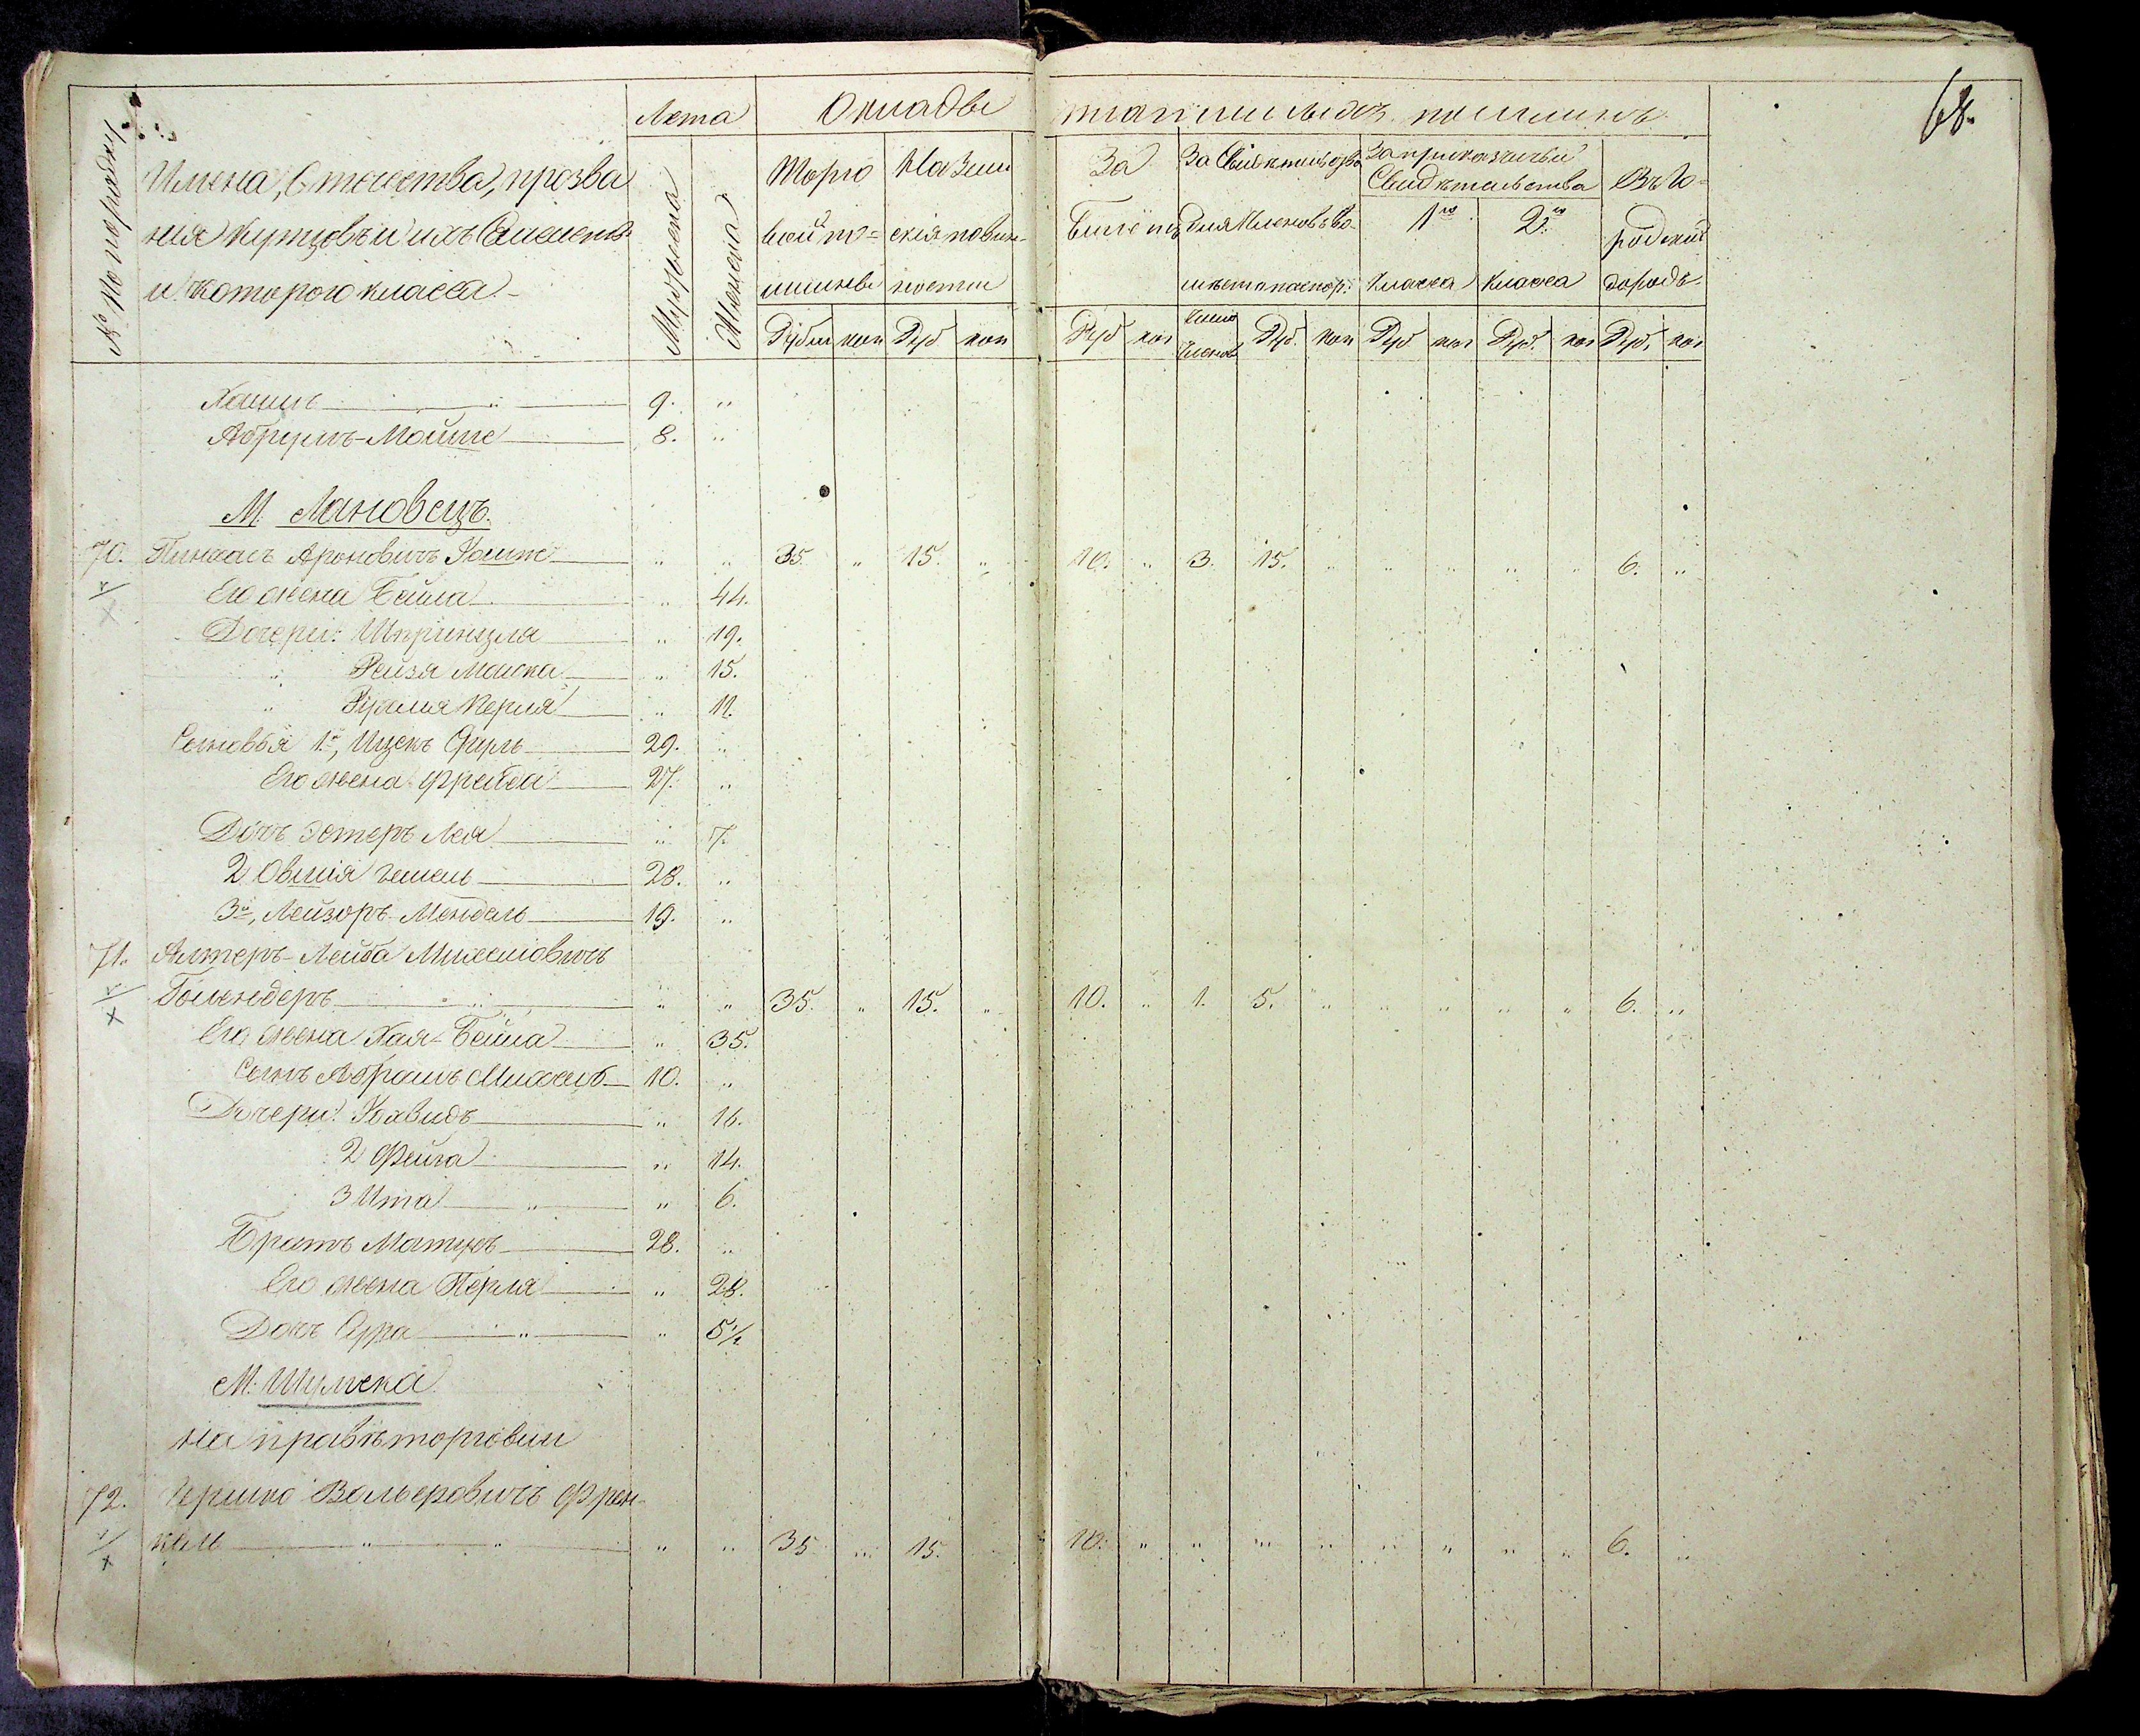 68.
№ по порядку
Имена, Отчества, прозва
ния купцовъ и ихъ Семейств
и котораго класса
Лета
Мужеска
Женска
Оклады
Торго
вой по=
шлины
Рубли коп
На Зем
скія повин-
ности
Руб коп
За
Билеты
Руб коп
За Свидѣтельства
для Членовъ въ
мѣсто паспор:
число членов Руб. коп
За прикащичьи
Свидѣтельства
1го 2го
класса класса
Руб коп Руб. коп
Въ Го=
родской
доходъ
Руб. коп
Хаимъ 9. "
Абрумъ-Мойше 8. "
М. Лановецъ.
70. Пинхасъ Ароновичъ " " 35. " 15. " 10. " 3. 15. " " " " " 6. "
Его жена Бейла " 44.
Дочери: Шпринцля " 19.
" Рейзя Маска " 15.
" Перля " 11.
Сыновья 1й, Ицекъ 29. "
Его жена Фрейда 27. "
Дочь Эстеръ Лея " 7.
2 Овшія 28. "
3й, Лейзоръ-Мендель 19. "
71. Алтеръ-Лейба Михелiовичъ
Голендеръ " " 35. " 15. " 10. " 1. 5. " " " " " 6. "
Его жена Хая-Бейла " 35.
Сынъ Абрамъ Михель 10. "
Дочери: " 16.
2 Фейга " 14.
3 Ита " 6.
Братъ Матусъ 28. "
Его жена Перля " 28.
Дочь Сура " 5½
М. Шумска
на правѣ торговли
72. Гершко Вольфовичъ Френ-
кель " " 35 " 15. 10. " " " " " " " " 6. "